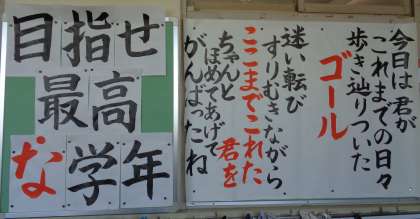 目指せ
最高
な学年
今日は君が
これまでの日々
歩き辿りついた
ゴール
迷い転び
すりむきながら
ここまでこれた君を
ちゃんと
ほめてあげて
がんばったね